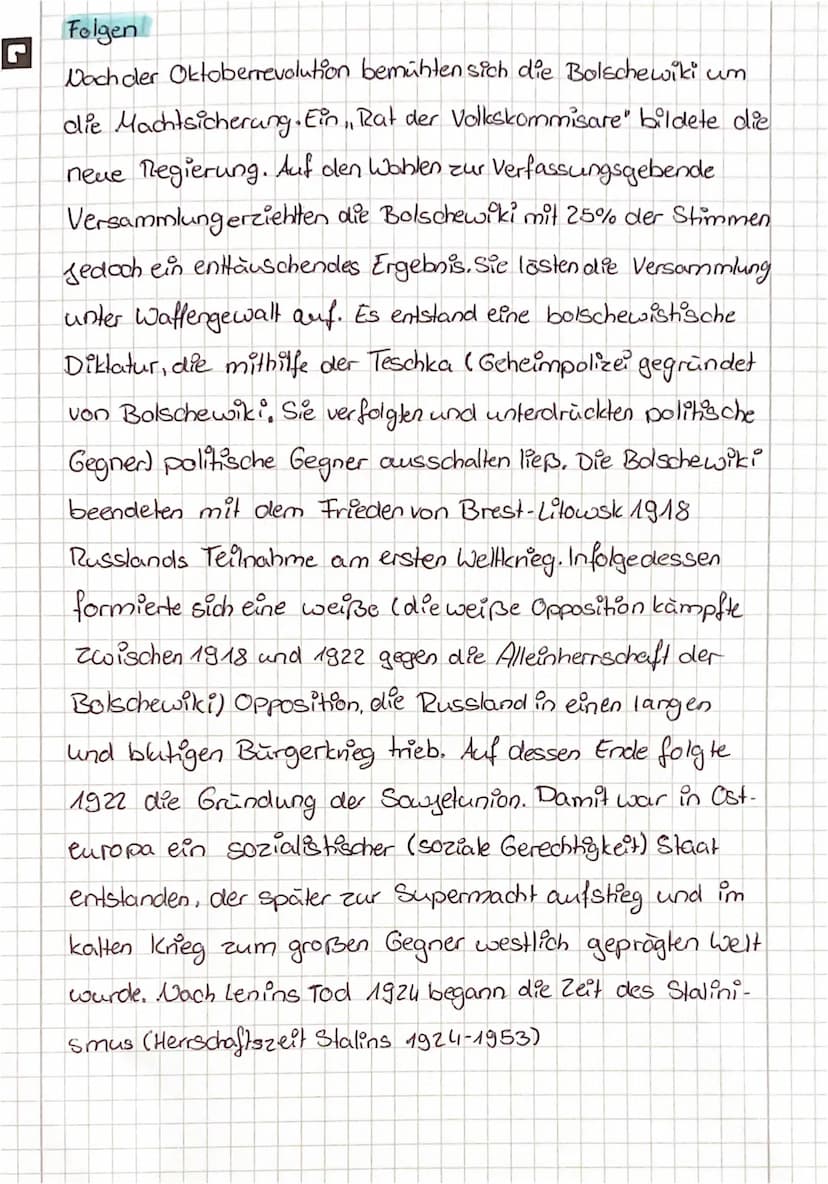 Folgen
Nach der Oktoberrevolution bemühten sich die Bolschewiki um
die Machtsicherung. Ein „Rat der Volkskommisare" bildete die
neue Regierung. Auf den Wahlen zur Verfassungsgebende
Versammlung erziehlten die Bolschewiki mit 25% der Stimmen
jedoch ein enttäuschendes Ergebnis. Sie lösten die Versammlung
unter Waffengewalt auf. Es entstand eine bolschewistische
Diktatur, die mithilfe der Teschka (Geheimpolizei gegründet
von Bolschewiki. Sie verfolgten und unterdrückten politische
Gegner) politische Gegner ausschalten ließ. Die Bolschewiki
beendeten mit dem Frieden von Brest-Litowsk 1918
Russlands Teilnahme am ersten Weltkrieg. Infolgedessen
formierte sich eine weiße (die weiße Opposition kämpfte
zwischen 1918 und 1922 gegen die Alleinherrschaft der
Bolschewiki) Opposition, die Russland in einen langen
und blutigen Bürgerkrieg trieb. Auf dessen Ende folgte
1922 die Gründung der Sowjetunion. Damit war in Ost-
europa ein sozialistischer (soziale Gerechtigkeit) Staat
entstanden, der später zur Supermacht aufstieg und im
kalten Krieg zum großen Gegner westlich geprägten Welt
wurde. Nach Lenins Tod 1924 begann die Zeit des Stalini-
smus (Herrschaftszeit Stalins 1924-1953)